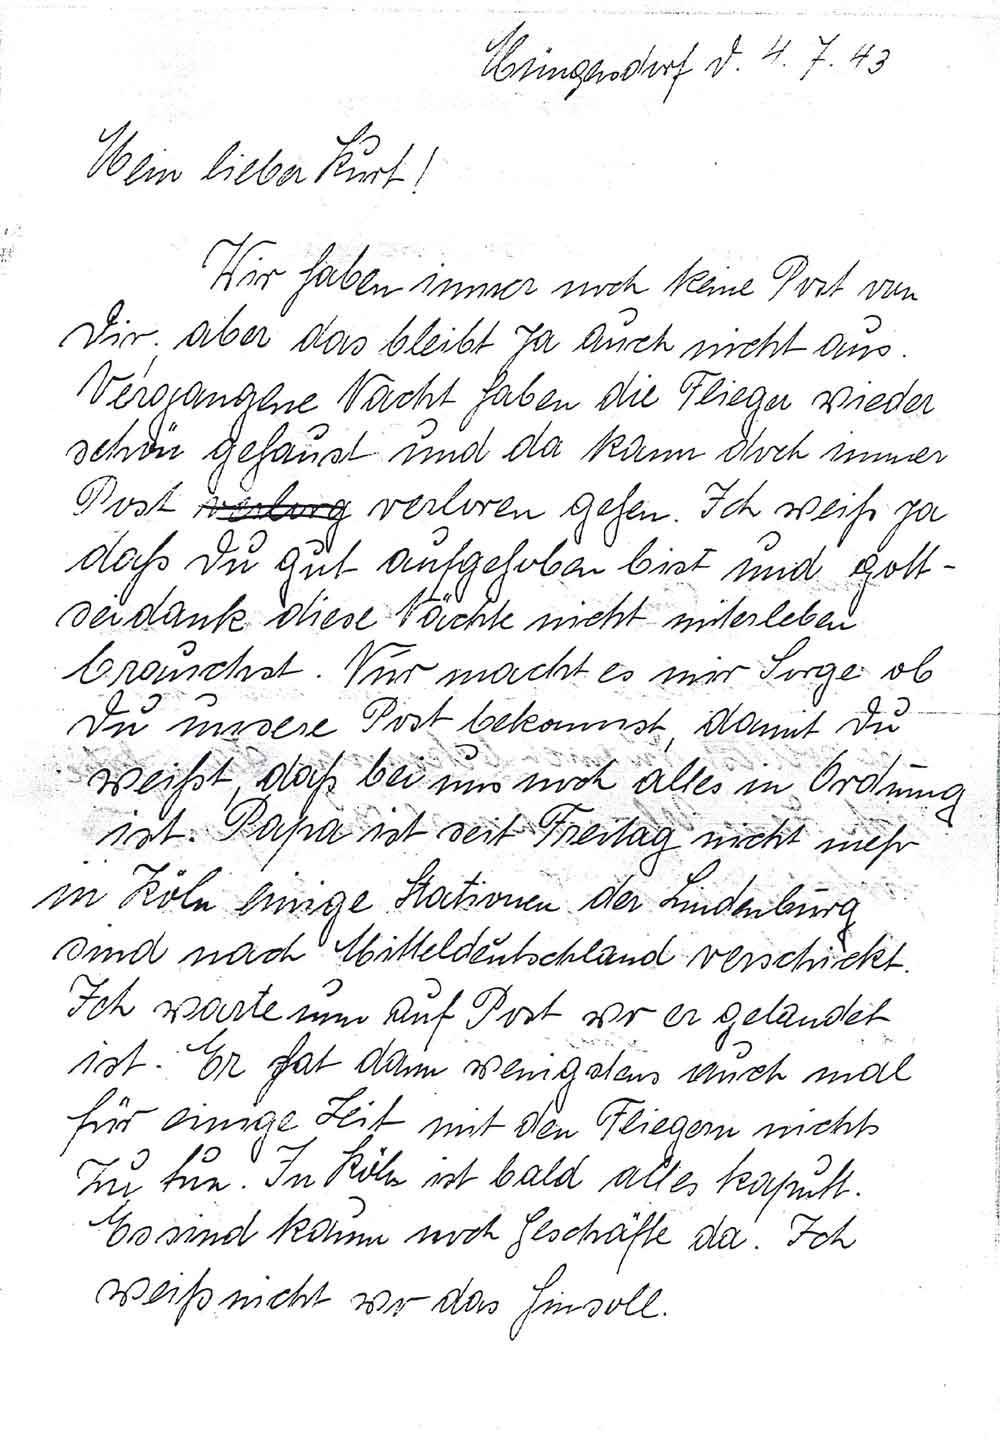 Müngersdorf d. 4.7.43
Mein lieber Kurt!
Wir haben immer noch keine Post von
Dir, aber das bleibt ja auch nicht aus.
Vergangene Nacht haben die Flieger wieder
schön gehaust und da kann doch immer
Post verlorg verloren gehen. Ich weiß ja
daß Du gut aufgehoben bist und gott-
seidank diese Nächte nicht miterleben
brauchst. Nur macht es mir Sorge ob
Du unsere Post bekommst, damit Du
weißt, daß bei uns noch alles in Ordnung
ist. Papa ist seit Freitag nicht mehr
in Köln einige Stationen der Lindenburg
sind nach Mitteldeutschland verschickt.
Ich warte nun auf Post wo er gelandet
ist. Er hat dann wenigstens auch mal
für einige Zeit mit den Fliegern nichts
zu tun. In Köln ist bald alles kaputt.
Es sind kaum noch Geschäfte da. Ich
weiß nicht wo das hinsoll.